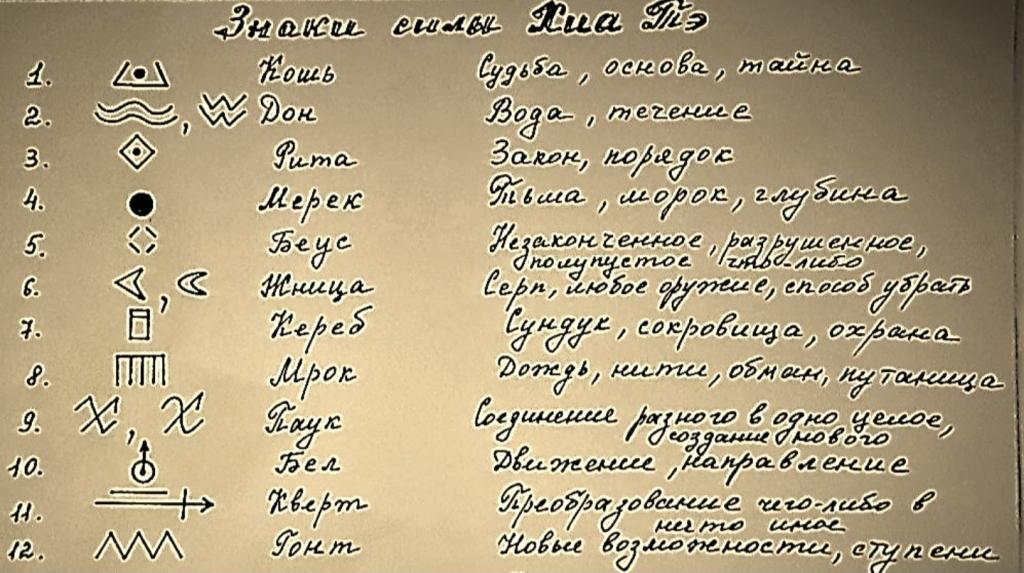 Знаки силы Хиа Тэ
1. Кошь Судьба, основа, тайна
2. , Дон Вода, течение
3. Рита Закон, порядок
4. Мерек Тьма, морок, глубина
5. Беус Незаконченное, разрушенное,
полупустое что-либо
6. , Жница Серп, любое оружие, способ убрать
7. Кереб Сундук, сокровища, охрана
8. Мрок Дождь, нити, обман, путаница
9. , Паук Соединение разного в одно целое,
создание нового
10. Бел Движение, направление
11. Кверт Преобразование чего-либо в
нечто иное
12. Гонт Новые возможности, ступени